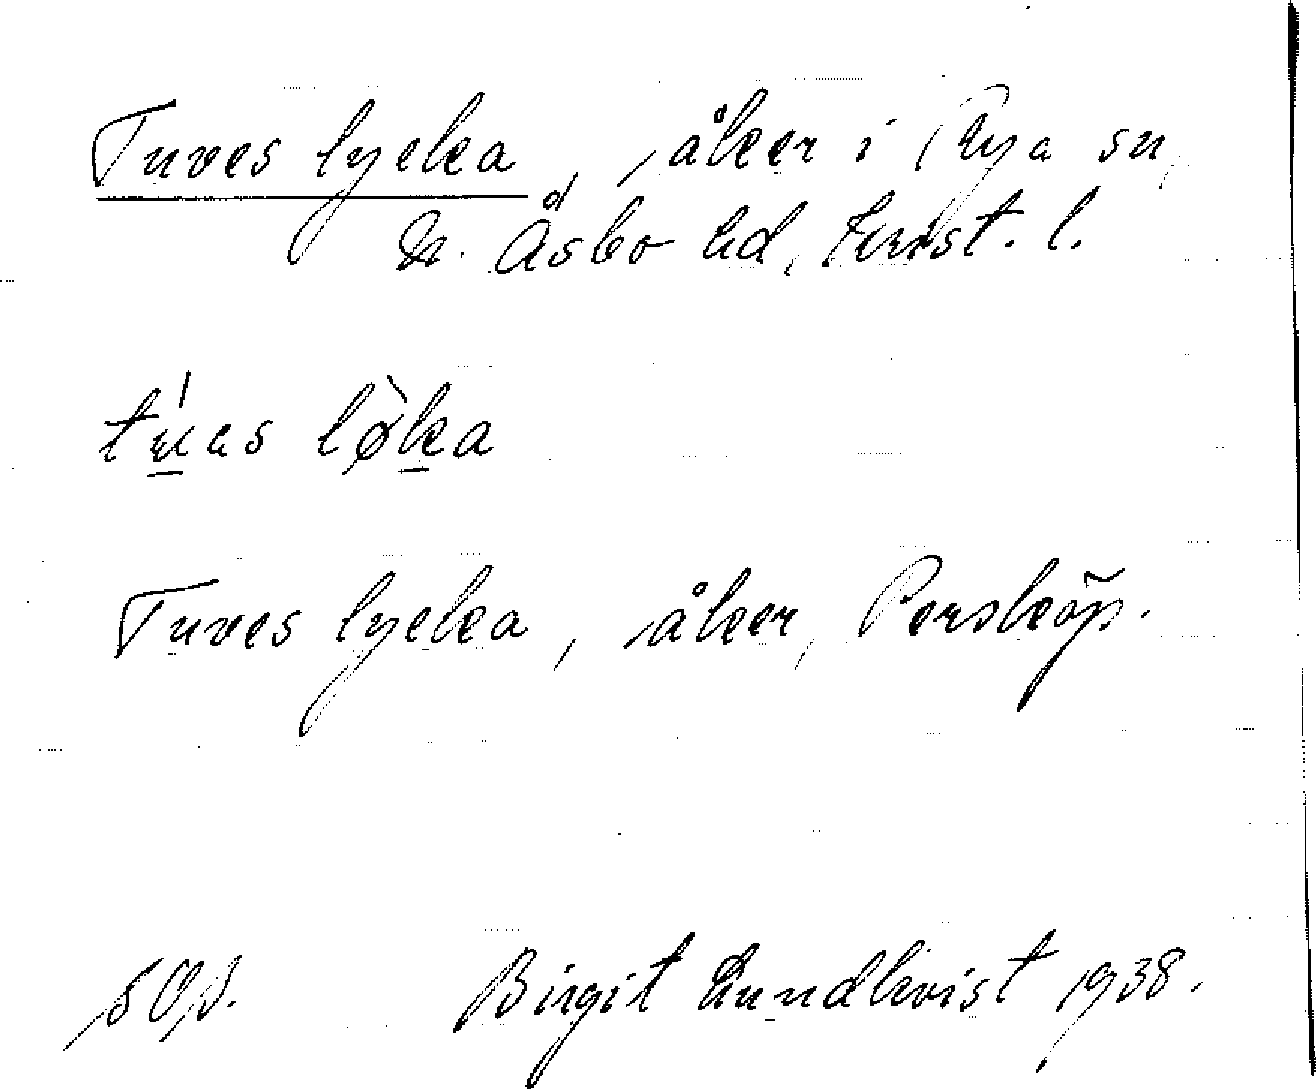 Tuves lycka, åker i Rya sn,
N. Åsbo hd, Krist. l.
túas lø̀ka
Tuves lycka, åker, Persköp.
Birgit Lundkvist 1938.